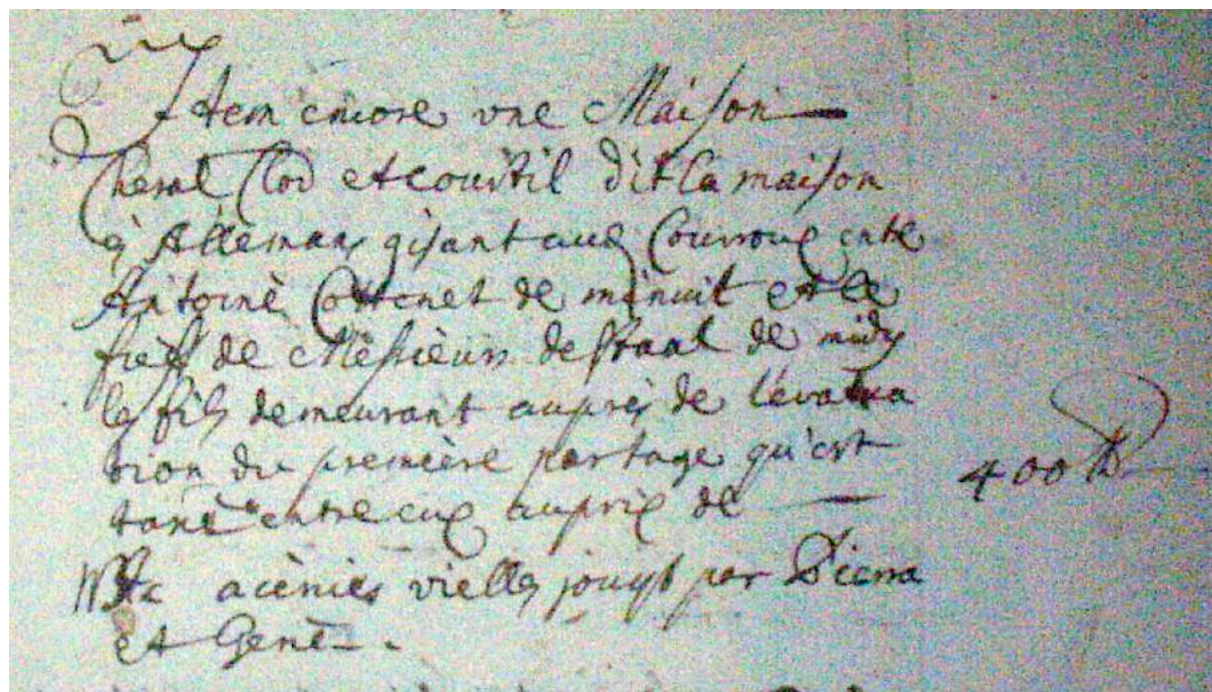 Item encore une Maison
Cheval Clod et courtil dit la maison
à Alleman gisant aux Courroux entre
Antoine Cottenet de minuit et le
fief de Messieurs de Staal de midy
les fils demeurant auprès de levalua
tion du première partage qu'est
taxé entre eux auprix de 400
acènies vielles jouyst par Pierra
et Genè